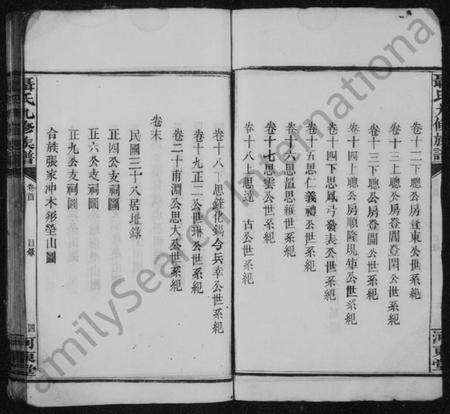 聶氏九修族譜
卷十二下聰公房登東公世系紀
卷十三下聰公房登閣公世系紀
卷十四上聰公房順隆規矩公世系紀
卷十四下思鳳弓發表公世系紀
卷十五思仁義禮公世系紀
卷十六思溫思維世系紀
卷十七思雲公世系紀
卷十八上思 古公世系紀
河東堂
卷十八下思 化錫令兵幸公世系紀
卷十九正二公世 公世系紀
卷二十甫淵公思大公世系紀
卷末
民國三十八居址錄
正四公支祠圖
正六公支祠圖
正九公支祠圖
合族張家冲木形塋山圖
聶氏九修族譜
卷首
目錄
四
河東堂
FamilySearch International